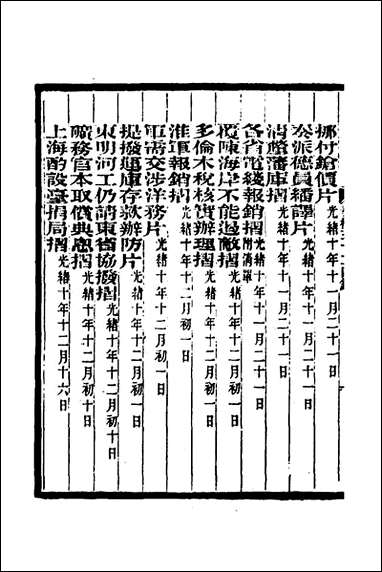 挪付鎗價片光緒十年十一月二十一日
奏派德員繙譯片光緒十年十一月二十一日
清釐藩庫摺光緒十年十一月二十一日
各省電綫報銷摺附清單光緒十年十一月二十一日
覆陳海岸不能過敵摺光緒十年十一月二十一日
多倫木稅核實辦理摺光緒十年十二月初一日
淮軍報銷摺光緒十年十二月初一日
軍需交涉洋務片光緒十年十二月初一日
提撥運庫存款辦防片光緒十年十二月初一日
東明河工仍請東省協撥摺光緒十年十二月初十日
礦務官本取償典息摺光緒十年十二月初十日
上海酌設臺捐局摺光緒十年十二月十六日